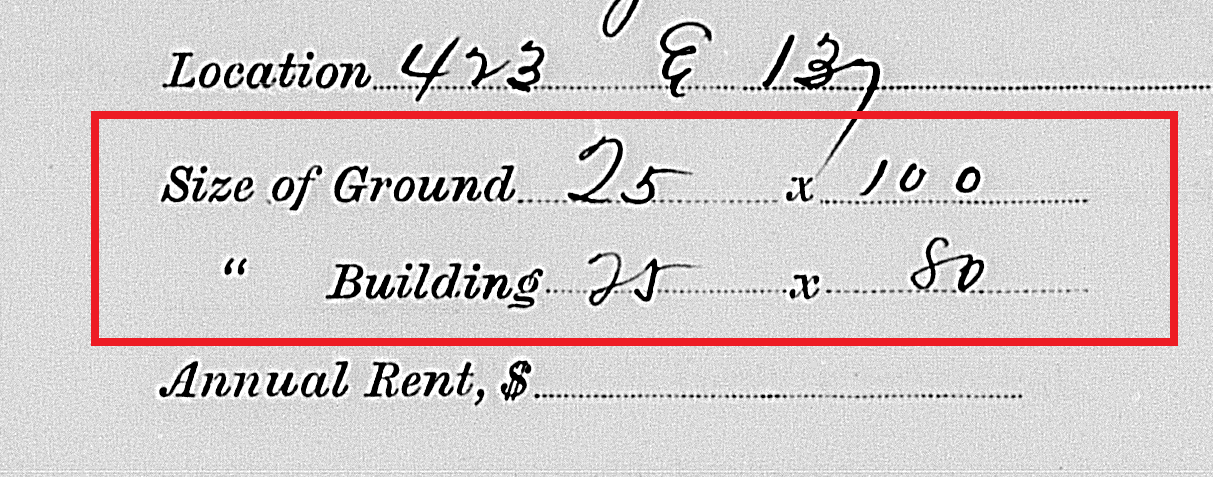 Location 423 E 137
Size of Ground 25 x 100
" Building 25 x 80
Annual Rent, $